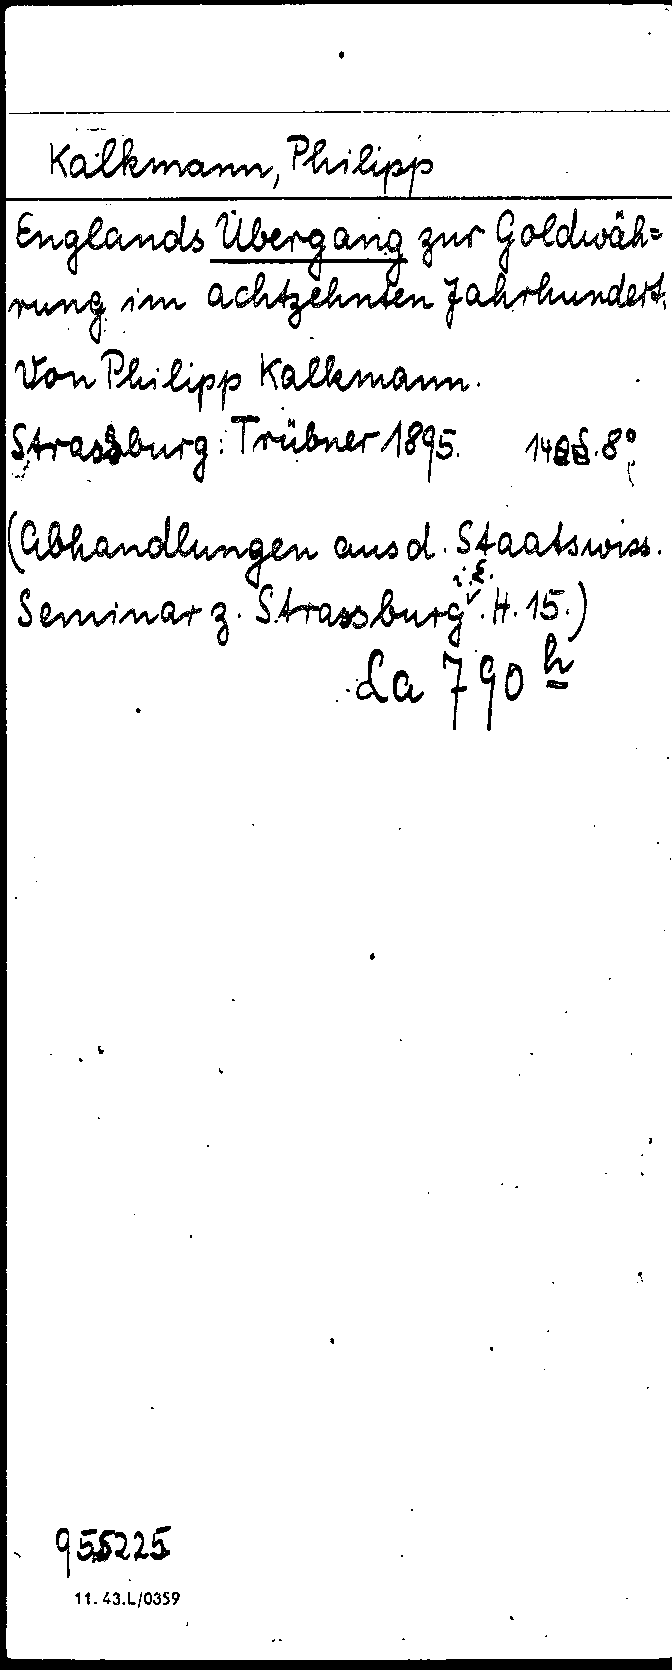 Kalkmann, Philipp
Englands Übergang zur Goldwäh=
rung im achtzehnten Jahrhundert.
Von Philipp Kalkmann.
Strassburg: Trübner 1895. 8°
(Abhandlungen aus d. Staatswiss.
i. E.
Seminar z. Strassburg. H. 15.)
La 790 h
955225
11. 43.L/0359